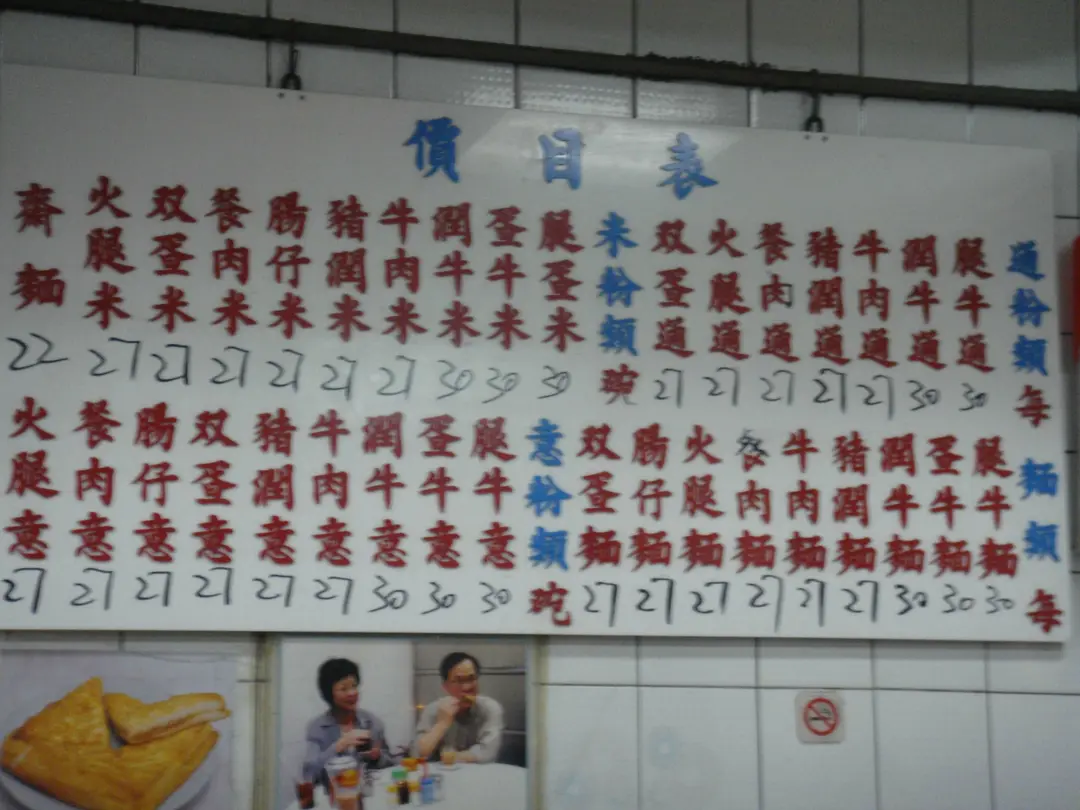 價目表
通粉類 每
腿牛通 30
潤牛通 30
牛肉通 27
豬潤通 27
餐肉通 27
火腿通 27
双蛋通 27
米粉類 碗
腿蛋米 30
蛋牛米 30
潤牛米 30
牛肉米 27
豬潤米 27
腸仔米 27
餐肉米 27
双蛋米 27
火腿米 27
齋麵 22
麵類 每
腿牛麵 30
蛋牛麵 30
潤牛麵 30
豬潤麵 27
牛肉麵 27
餐肉麵 27
火腿麵 27
腸仔麵 27
双蛋麵 27
意粉類 碗
腿牛意 30
蛋牛意 30
潤牛意 30
牛肉意 27
豬潤意 27
双蛋意 27
腸仔意 27
餐肉意 27
火腿意 27